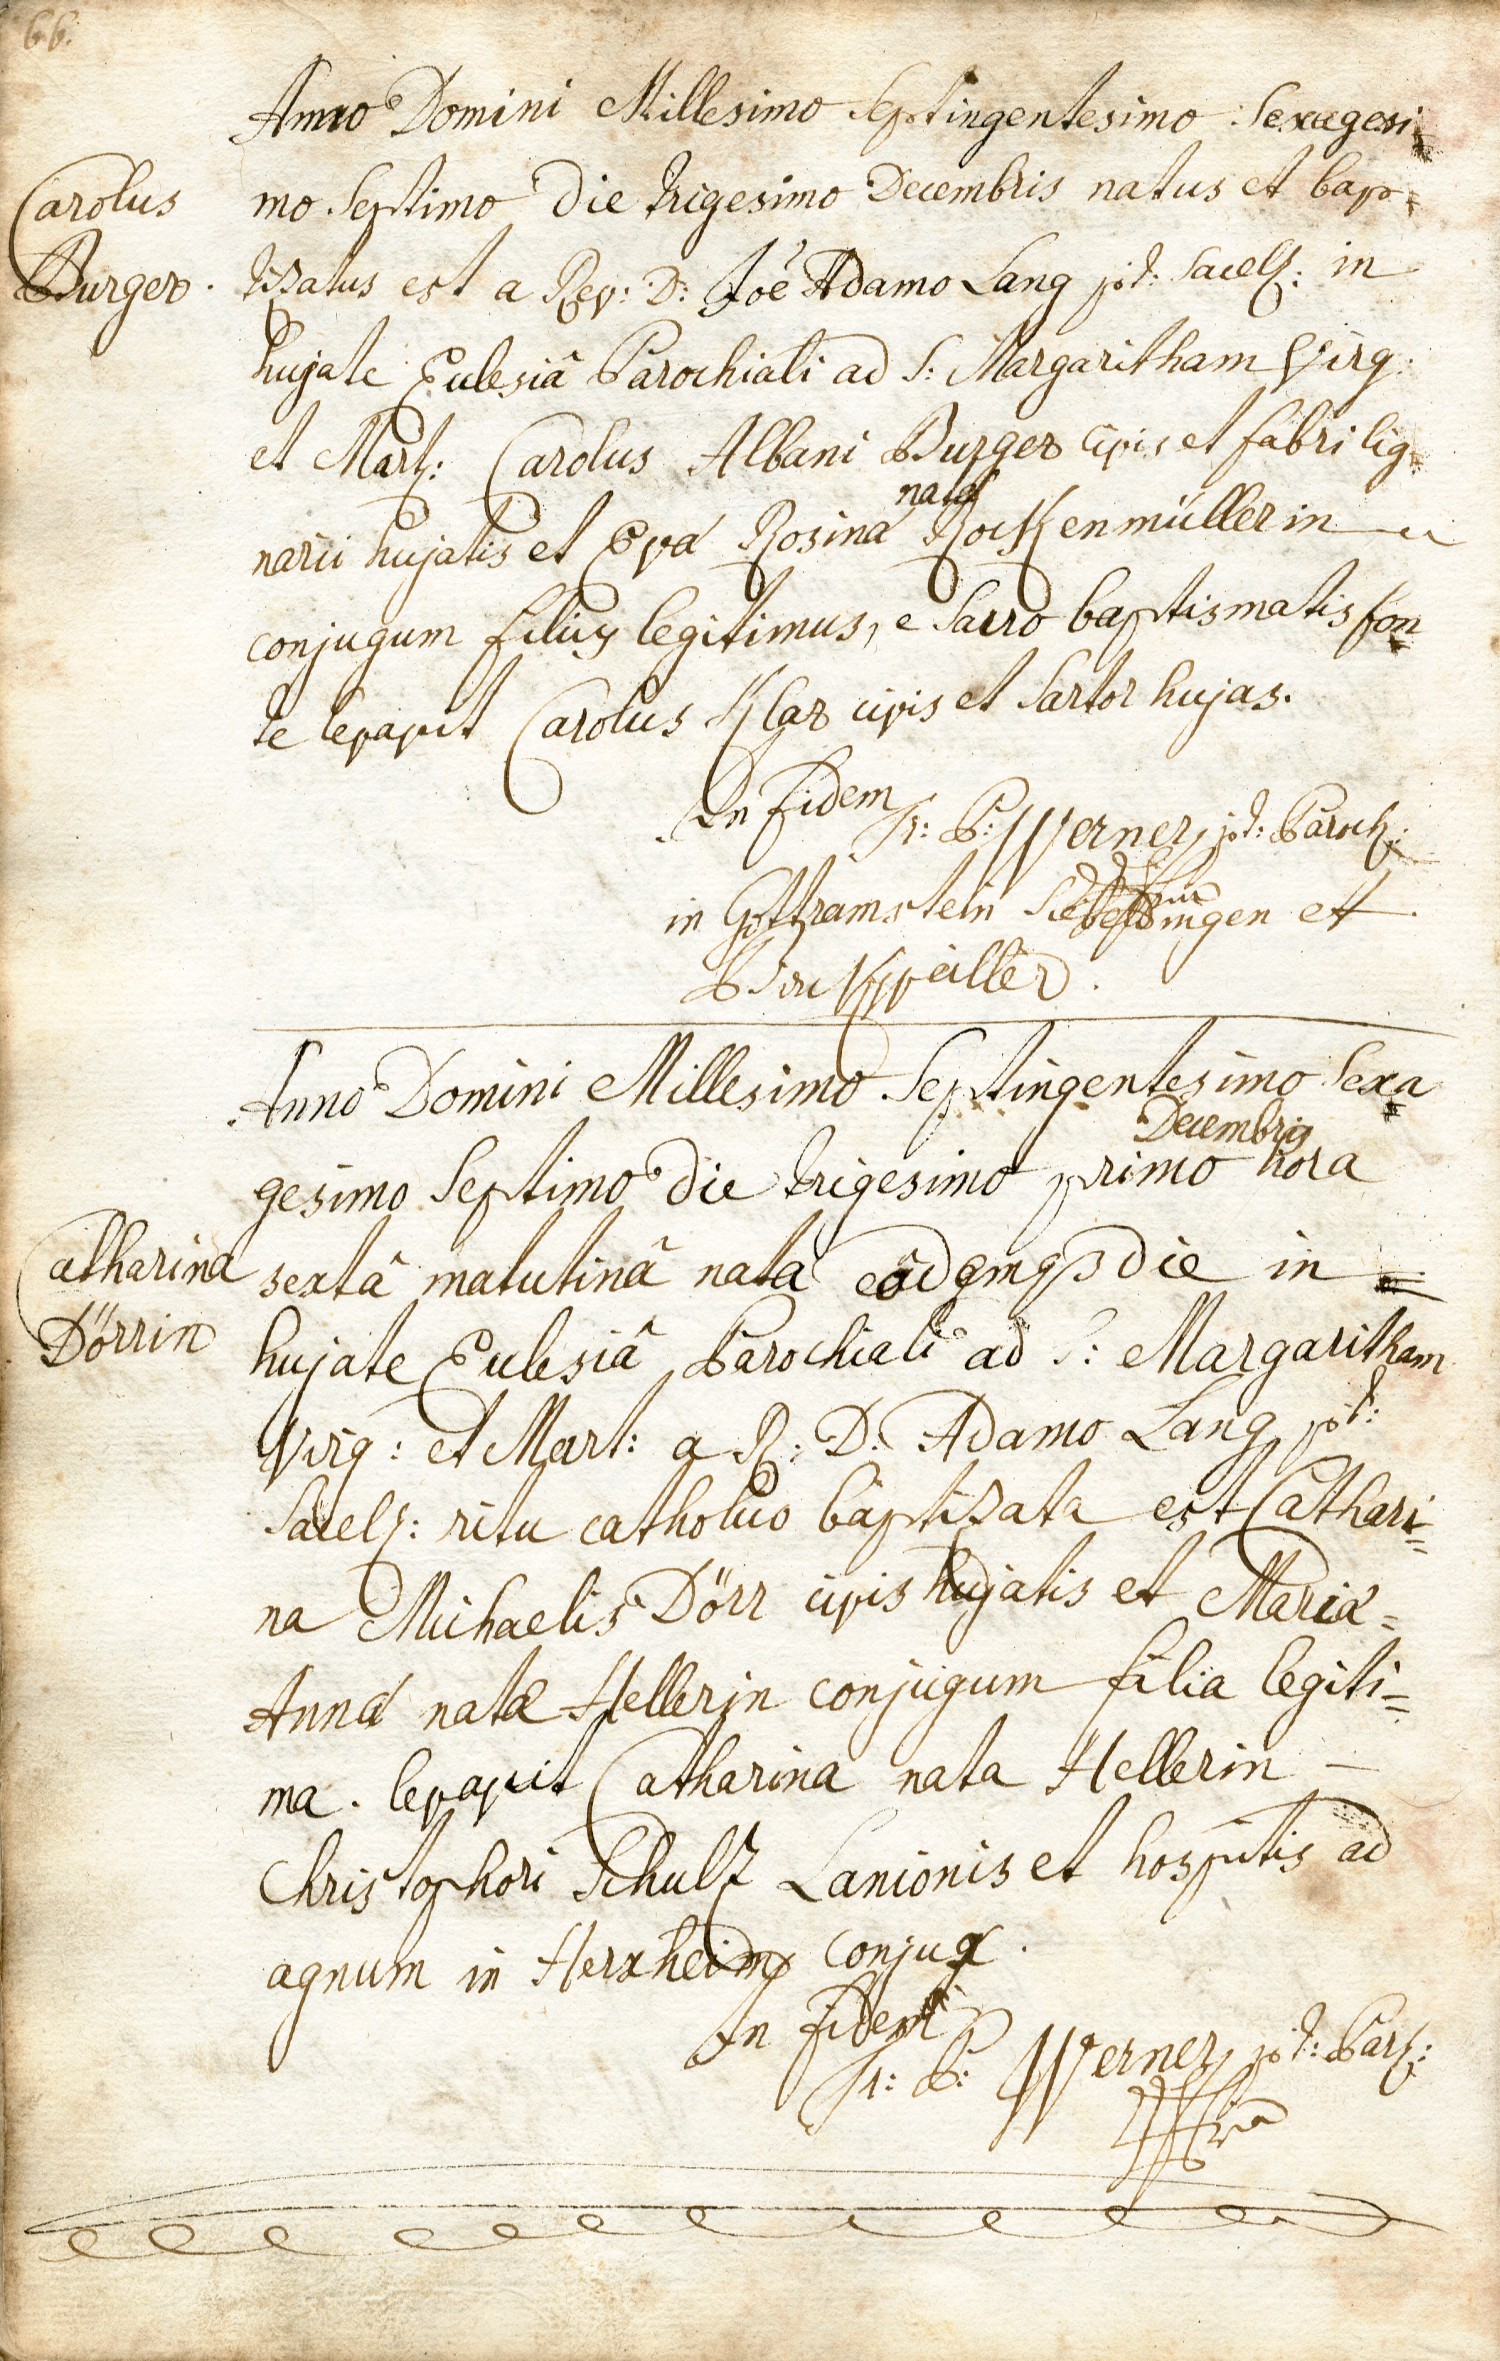 66.
Anno Domini Millesimo Septingentesimo Sexagesi=
Carolus
Burger.
mo Septimo die trigesimo Decembris natus et bap=
tizatus est a Rev: D: Joe Adamo Lang p.t: Sacell: in
hujate Eclesiâ Parochiali ad S: Margaritham Virg:
et Mart: Carolus Albani Burger civis et fabri lig=
natæ
narii hujatis et Evæ Rosinæ Rockenmüllerin
conjugum filius legitimus, e Sacro baptismatis fon=
te levavit Carolus Klar civis et Sartor hujas.
In fidem
P: Werner p.t: Paroch:
in Gottramstein Siebeldingen et
Birckweiller.
Anno Domini Millesimo Septingentesimo Sexa=
Decembris
gesimo Septimo die trigesimo primo hora
Catharina
Dörrin
sextâ matutinâ nata eâdemqз die in =
hujate Eclesiâ Parochiali ad S: Margaritham
Virg: et Mart: a R: D: Adamo Lang p.t:
Sacell: ritu catholico baptizata est Cathari=
na Michaelis Dörr civis hujatis et Mariæ=
Annæ natæ Hellerin conjugum filia legiti=
ma. levavit Catharina nata Hellerin —
Christophori Schulz Lanionis et hospitis ad
agnum in Herxheim conjux.
In fidem
P: Werner p.t: Par: